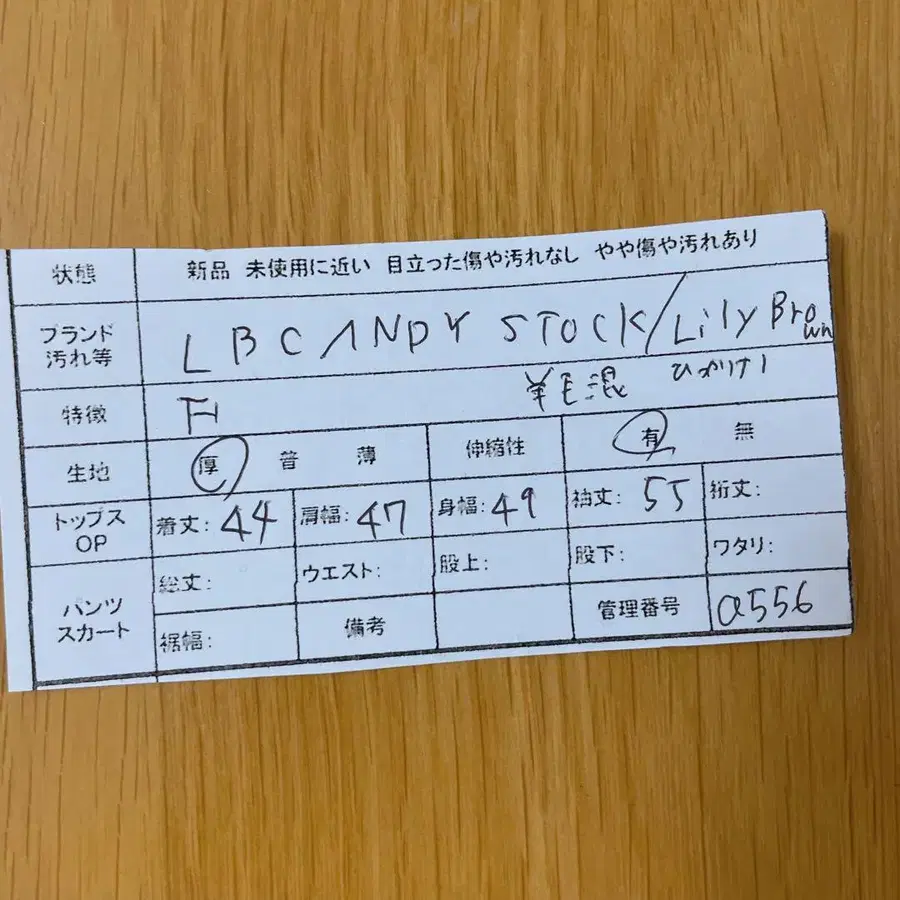 状態 新品 未使用に近い 目立った傷や汚れなし やや傷や汚れあり
ブランド 汚れ等 LBCANDY STOCK/Lily Brown
特徴 羊毛混 ひかりけし
生地 厚 普 薄 伸縮性 有 無
トップス OP 着丈: 44 肩幅: 47 身幅: 49 袖丈: 55 裄丈:
パンツ スカート 総丈: ウエスト: 股上: 股下: ワタリ:
裾幅: 備考 管理番号 a556